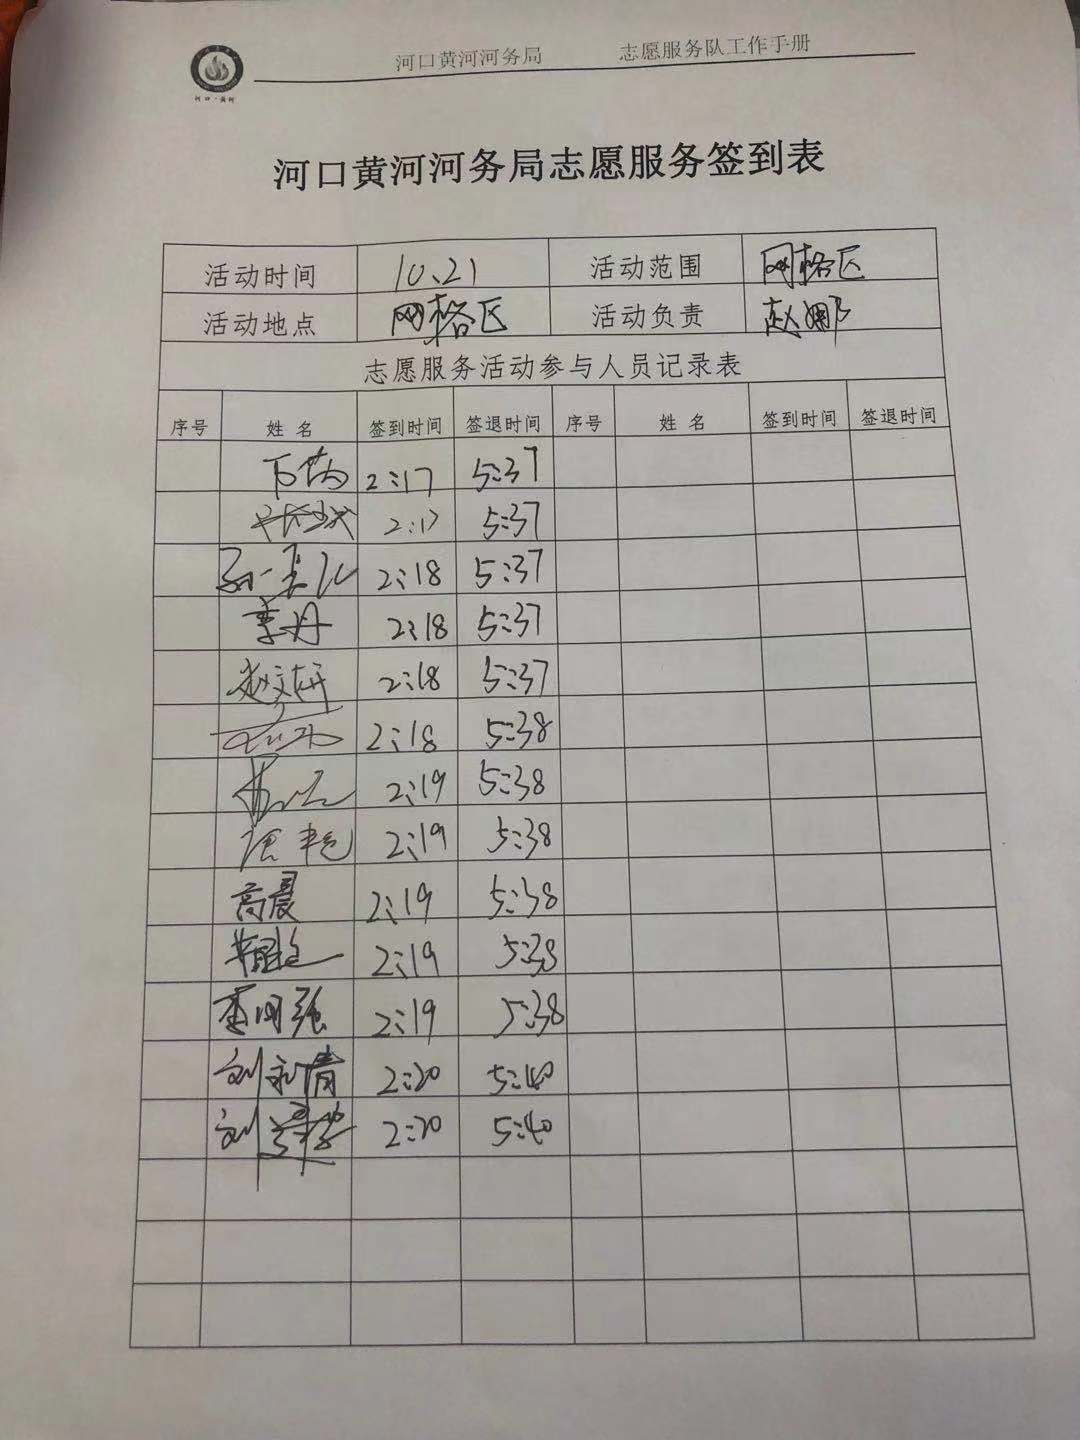 河口黄河河务局 志愿服务队工作手册
河口·黄河
河口黄河河务局志愿服务签到表
活动时间 10、21 活动范围 网格区
活动地点 网格区 活动负责 赵娜
志愿服务活动参与人员记录表
序号 姓名 签到时间 签退时间 序号 姓名 签到时间 签退时间
2:17 5:37
2:17 5:37
2:18 5:37
李丹 2:18 5:37
赵文妍 2:18 5:37
2:18 5:38
2:19 5:38
2:19 5:38
高晨 2:19 5:38
2:19 5:38
2:19 5:38
刘永青 2:20 5:40
刘 2:20 5:40